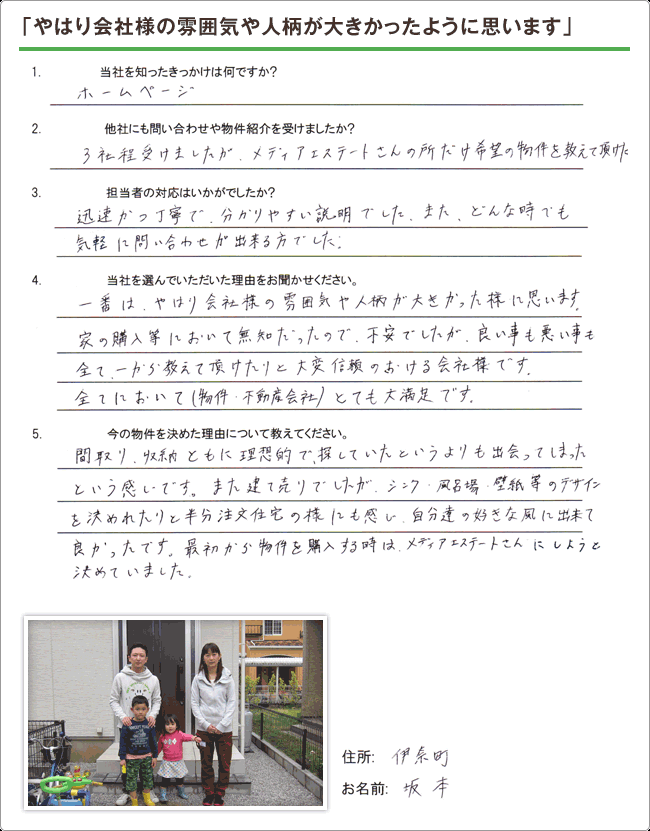 「やはり会社様の雰囲気や人柄が大きかったように思います」
1. 当社を知ったきっかけは何ですか?
ホームページ
2. 他社にも問い合わせや物件紹介を受けましたか?
3社程受けましたが、メディアエステートさんの所だけ希望の物件を教えて頂けた
3. 担当者の対応はいかがでしたか?
迅速かつ丁寧で、分かりやすい説明でした。また、どんな時でも
気軽に問い合わせが出来る方でした。
4. 当社を選んでいただいた理由をお聞かせください。
一番は、やはり会社様の雰囲気や人柄が大きかった様に思います。
家の購入等において無知だったので、不安でしたが、良い事も悪い事も
全て、一から教えて頂けたりと大変信頼のおける会社様です。
全てにおいて(物件・不動産会社)とても大満足です。
5. 今の物件を決めた理由について教えてください。
間取り、収納ともに理想的で、探していたというよりも出会ってしまった
という感じです。また建て売りでしたが、シンク・風呂場・壁紙等のデザイン
を決めれたりと半分注文住宅の様にも感じ、自分達の好きな風に出来て
良かったです。最初から物件を購入する時は、メディアエステートさんにしようと
決めていました。
住所: 伊奈町
お名前: 坂本